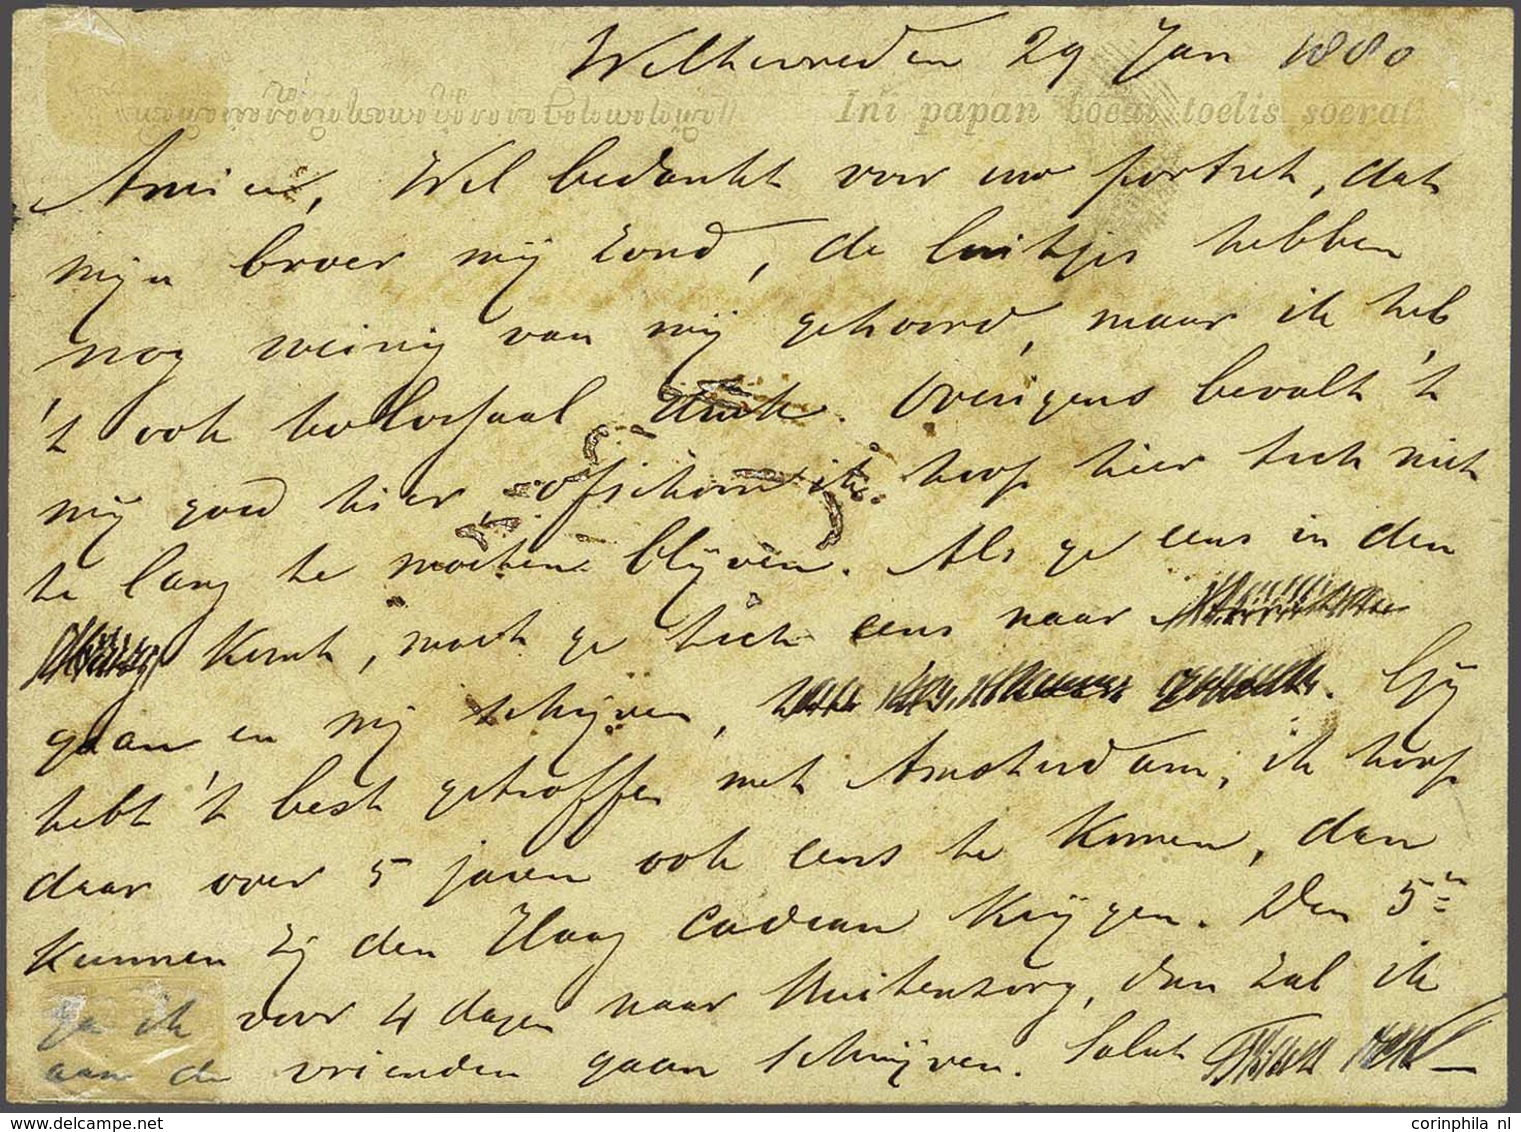 Weltevreden 29 Jan 1880
Ini papan boeat toelis soerat
Amice, Wel bedankt voor uw portret, dat
mijn broer mij zond, de luitjes hebben
nog weinig van mij gehoord, maar ik heb
't ook kolossaal druk. Overigens bevalt 't
mij goed hier, ofschoon ik hoop hier toch niet
te lang te moeten blijven. Als ge eens in den
komt, moet ge toch eens naar
gaan en mij schrijven, Gij
hebt 't best getroffen met Amsterdam, ik hoop
daar over 5 jaren ook eens te komen, dan
kunnen zij den Haag cadeau krijgen. Den 5n
ga ik voor 4 dagen naar Buitenzorg, dan zal ik
aan de vrienden gaan schrijven. Salut
corinphila nl